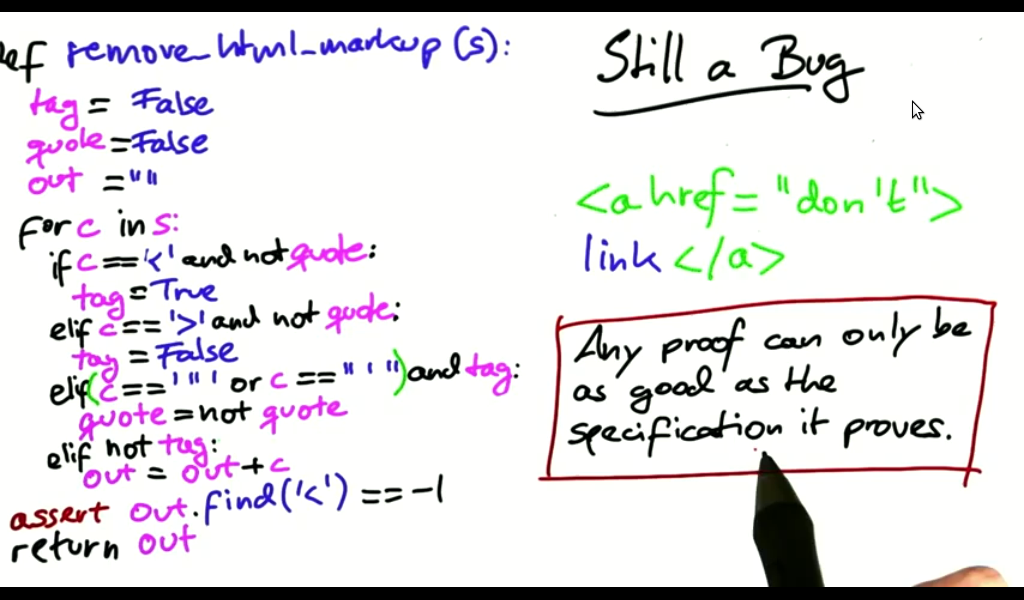 def remove_html_markup (s):
tag = False
quote = False
out = ""
for c in s:
if c == '<' and not quote:
tag = True
elif c == '>' and not quote:
tag = False
elif (c == '"' or c == "'") and tag:
quote = not quote
elif not tag:
out = out + c
assert out.find('<') == -1
return out
Still a Bug
<a href = "don't">
link </a>
Any proof can only be
as good as the
specification it proves.